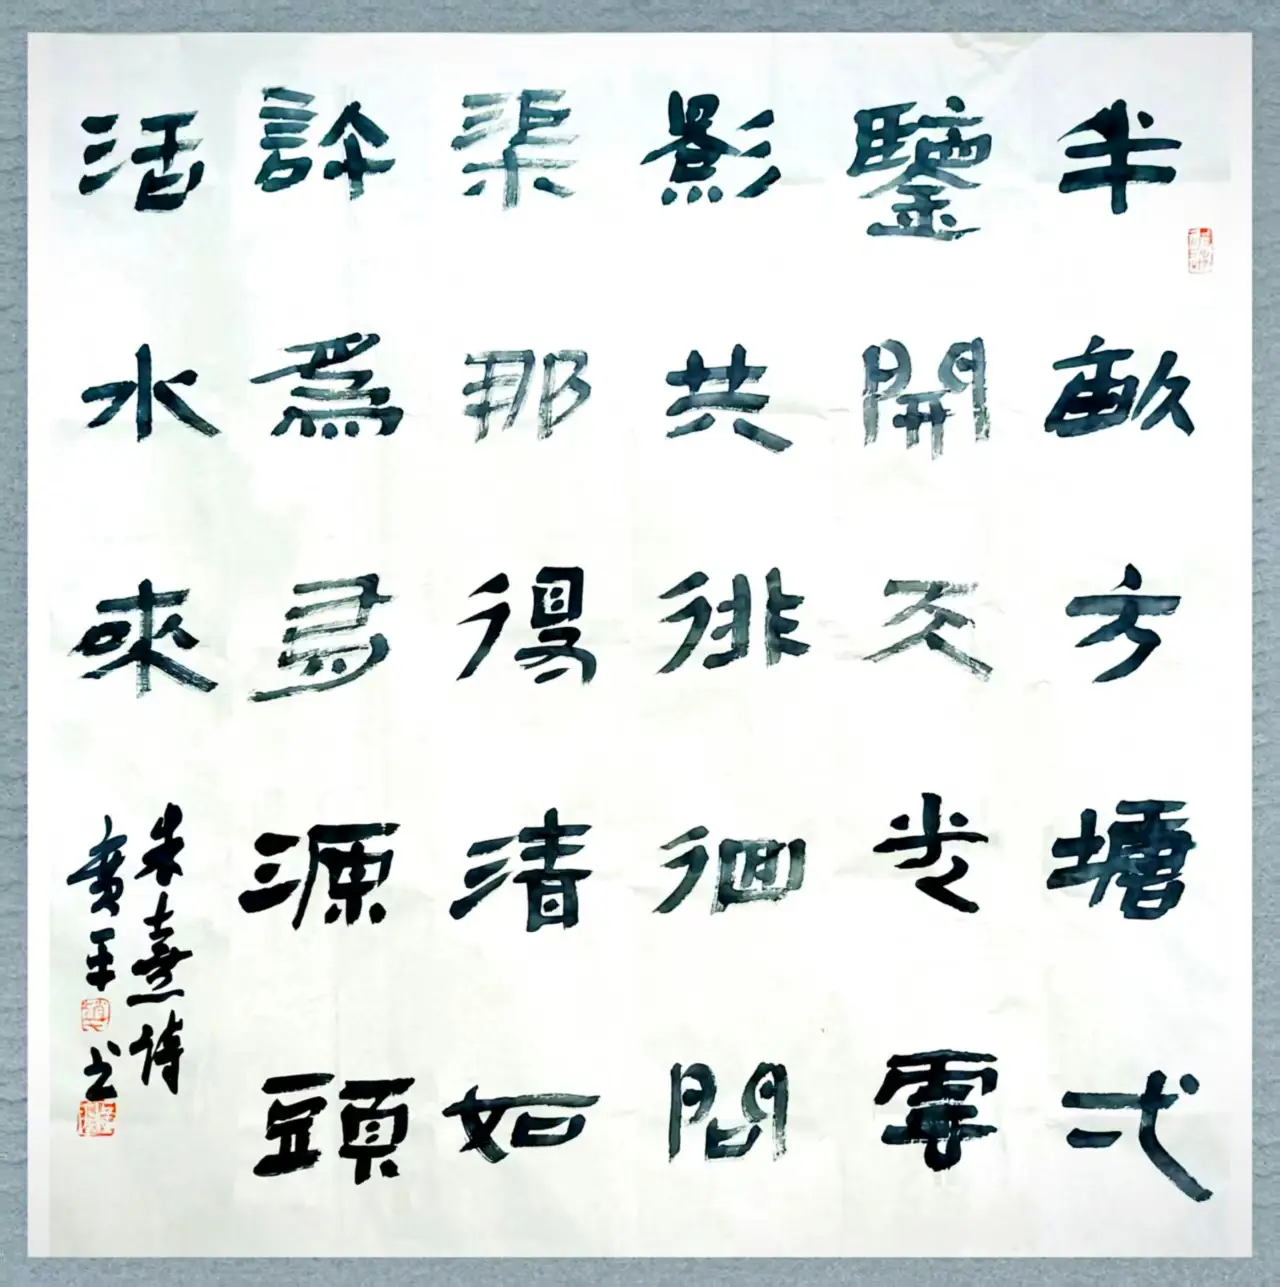 半畝方塘弌
鑒開天光雲
影共徘徊問
渠那得清如
許為源頭
活水來
朱熹詩
廣平书